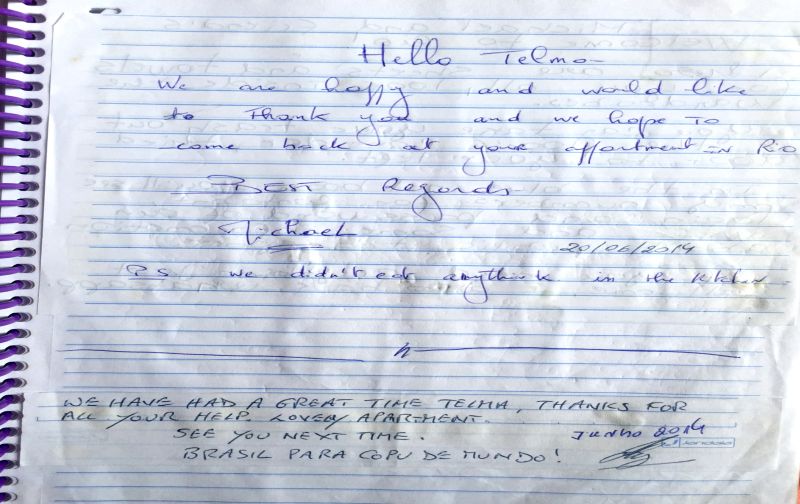 Hello Telma
We are happy and would like
to Thank you and we hope To
come back at your appartment in Rio
BEST Regards
Michael
20/06/2014
P.S. we didn't eat anythink in the kitchen
WE HAVE HAD A GREAT TIME TELMA, THANKS FOR
ALL YOUR HELP. LOVELY APARTMENT.
SEE YOU NEXT TIME.
Junho 2014
BRASIL PARA COPU DE MUNDO!
jandaia